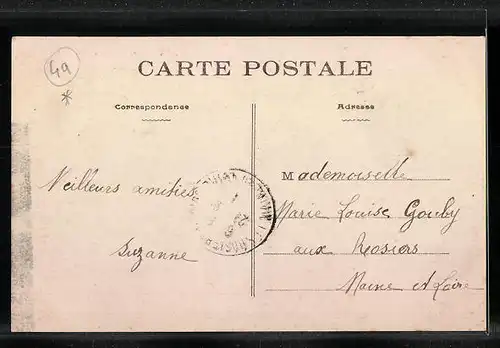 49
*
CARTE POSTALE
Correspondance
Adresse
Meilleurs amitiés
Suzanne
Mademoiselle
Marie Louise Gouby
aux Rosiers
Maine et Loire